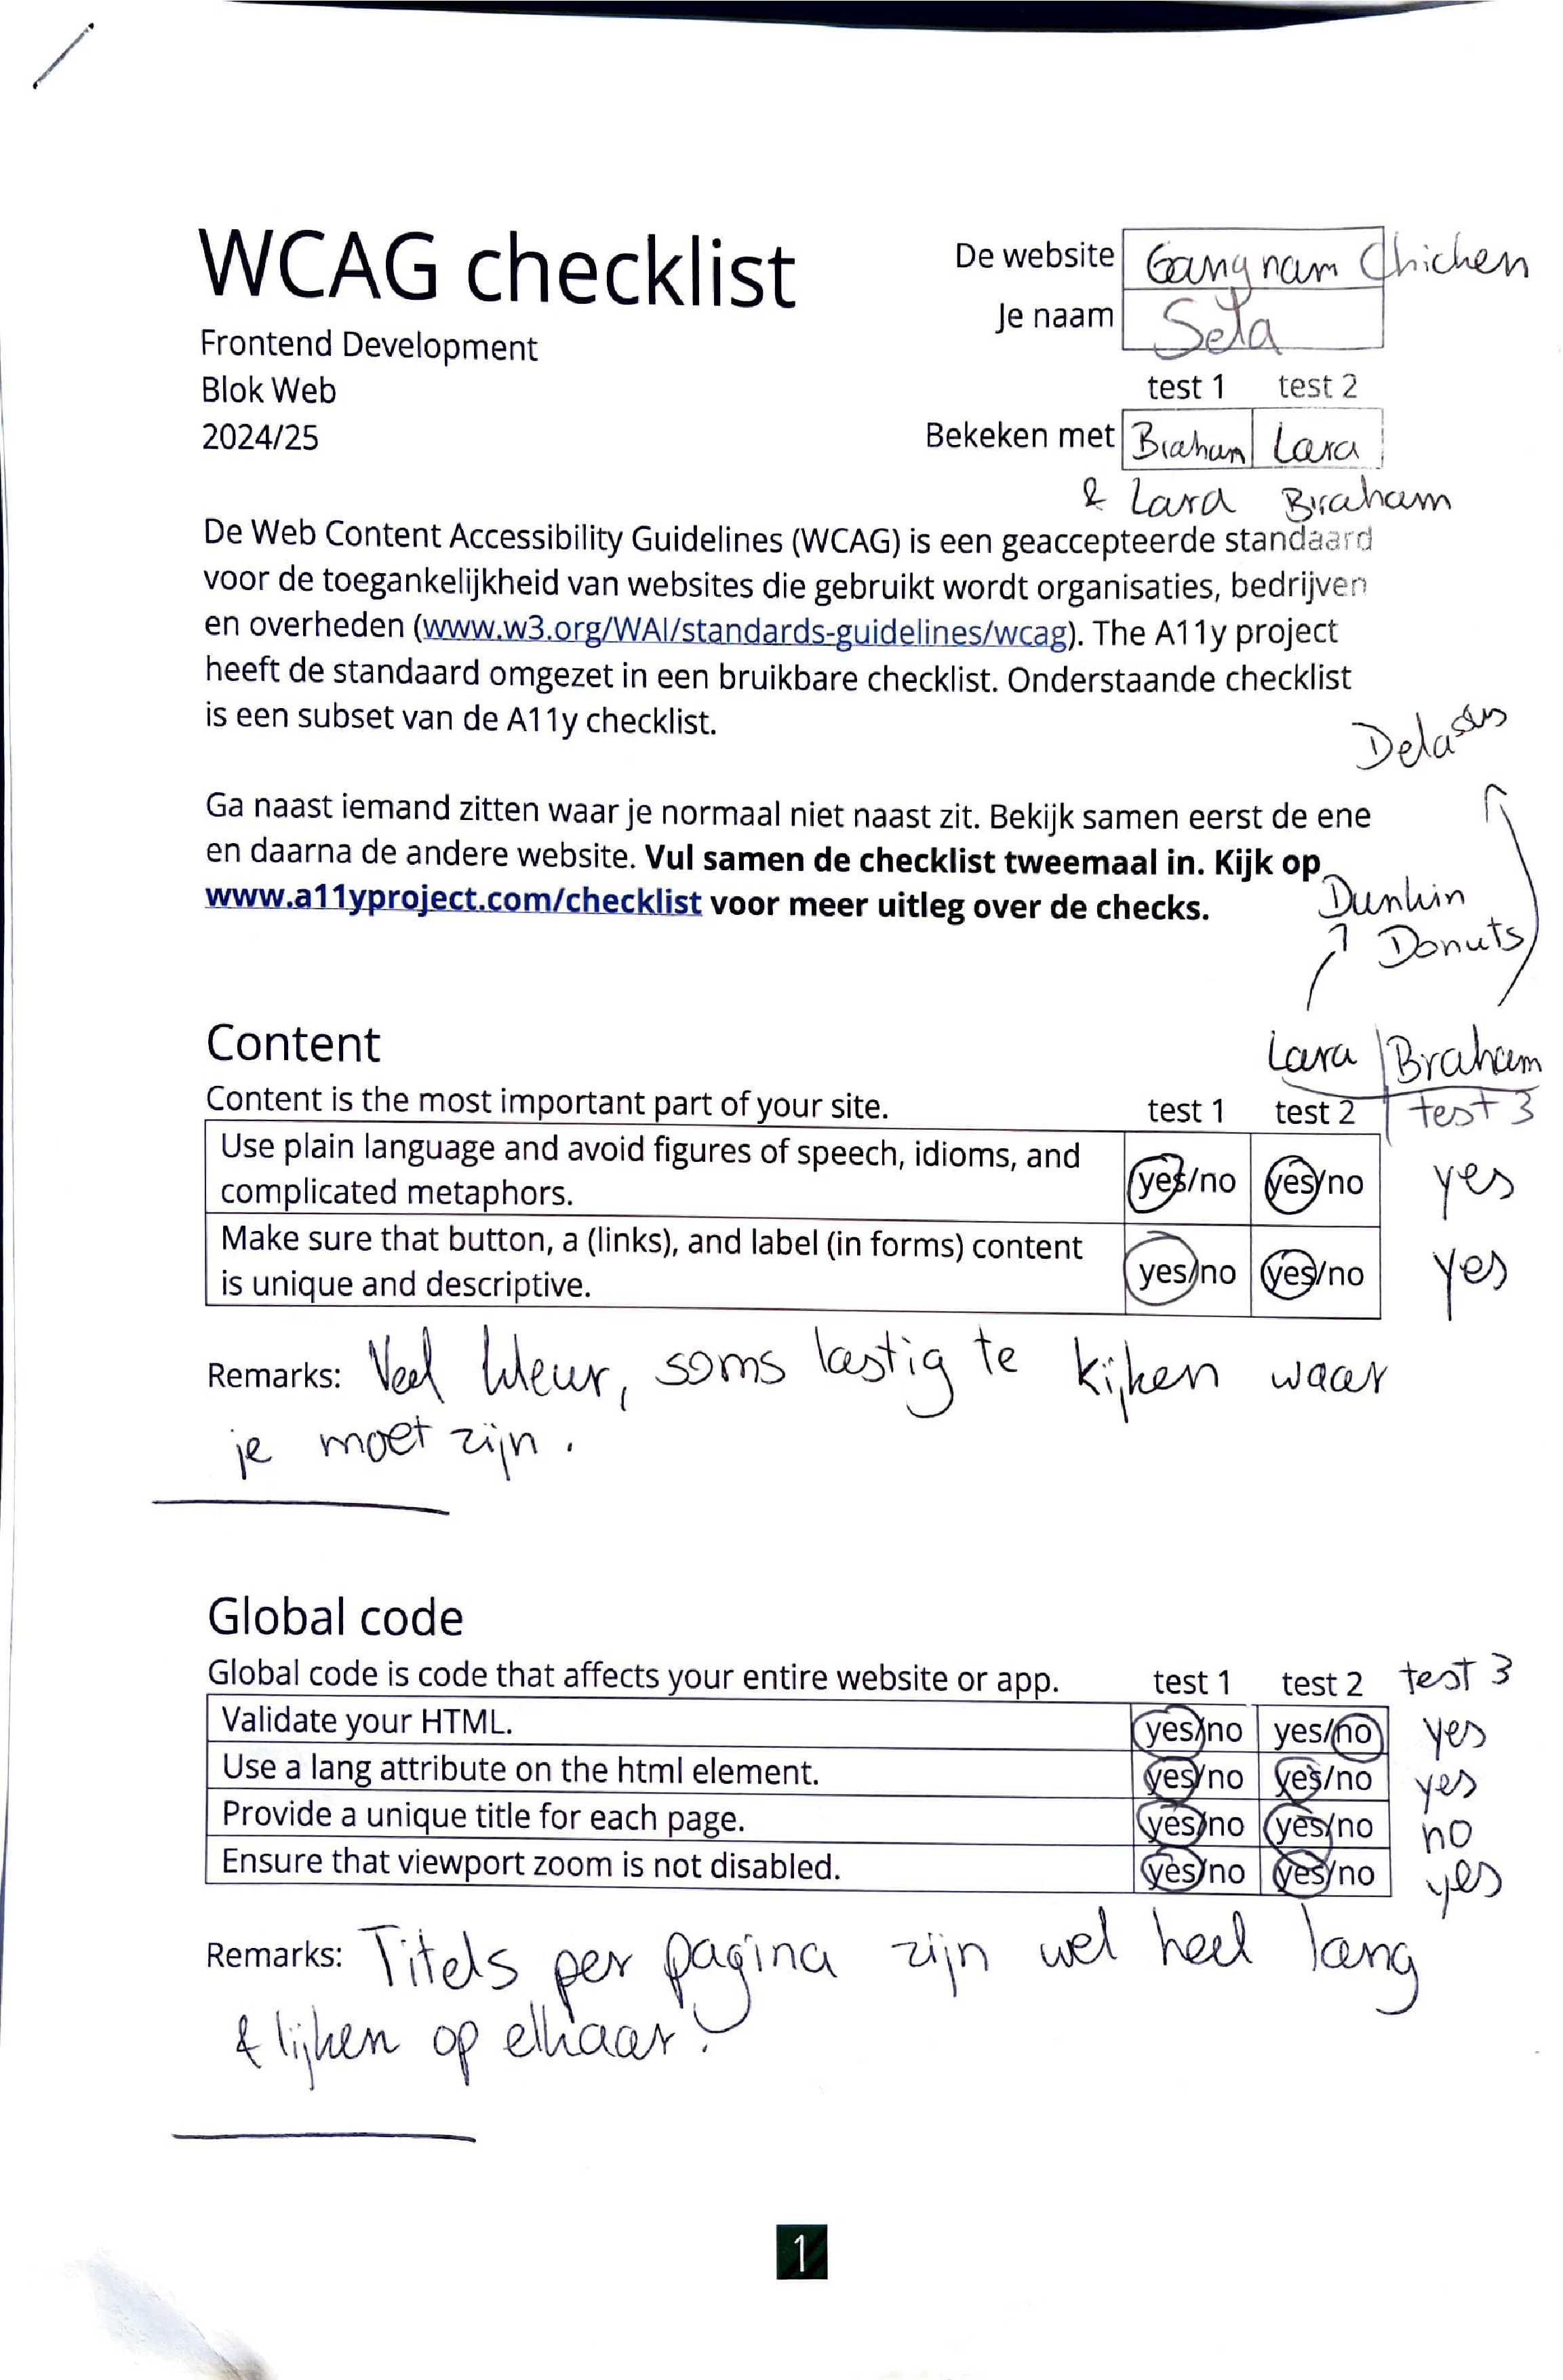 WCAG checklist
Frontend Development
Blok Web
2024/25
De website Gangnam Chicken
Je naam Seta
test 1 test 2
Bekeken met Braham Lara
& Lara Braham
De Web Content Accessibility Guidelines (WCAG) is een geaccepteerde standaard
voor de toegankelijkheid van websites die gebruikt wordt organisaties, bedrijven
en overheden (www.w3.org/WAI/standards-guidelines/wcag). The A11y project
heeft de standaard omgezet in een bruikbare checklist. Onderstaande checklist
is een subset van de A11y checklist.
Ga naast iemand zitten waar je normaal niet naast zit. Bekijk samen eerst de ene
en daarna de andere website. Vul samen de checklist tweemaal in. Kijk op
www.a11yproject.com/checklist voor meer uitleg over de checks.
Dunkin
Donuts
Lara Braham
Content
Content is the most important part of your site. test 1 test 2 test 3
Use plain language and avoid figures of speech, idioms, and
complicated metaphors. yes/no yes/no yes
Make sure that button, a (links), and label (in forms) content
is unique and descriptive. yes/no yes/no yes
Remarks: Veel kleur, soms lastig te kijken waar
je moet zijn.
Global code
Global code is code that affects your entire website or app. test 1 test 2 test 3
Validate your HTML. yes/no yes/no yes
Use a lang attribute on the html element. yes/no yes/no yes
Provide a unique title for each page. yes/no yes/no no
Ensure that viewport zoom is not disabled. yes/no yes/no yes
Remarks: Titels per pagina zijn wel heel lang
& lijken op elkaar.
1